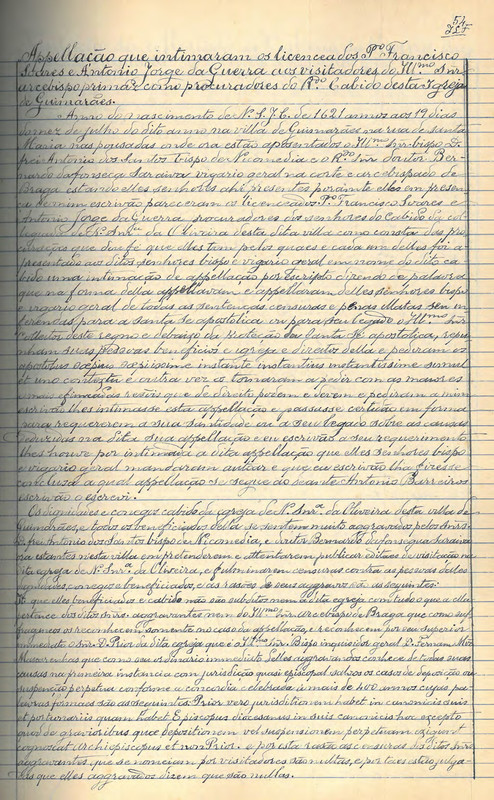 54
Appellação que intimaram os licenceados Pº Francisco
Soares e Antonio Jorge da Guerra aos visitadores do Illmo Snr
arcebispo primaz como procuradores do Rdo Cabido desta Igreja
de Guimarães.
Anno do nascimento de N. S. J. C. de 1621 annos aos 19 dias
do mez de julho do dito anno na villa de Guimarães na rua de Santa
Maria nas pousadas onde ora estão apresentados o Illmo Snr bispo D.
frei Antonio dos Santos bispo de Nicomedia e o Rdo Snr doutor Ber-
nardo da fonseca Saraiva vigario geral na corte e arcebispado de
Braga estando elles senhores ahi presentes perante elles em presen-
ça de mim escrivão pareceram os licenceados Pº Francisco Soares e
Antonio Jorge da Guerra procuradores dos senhores do Cabido da col-
legiada de N. Snra da Oliveira desta dita villa como consta das pro-
curações que dou fé que elles tem pelos quaes e cada um delles foi a-
presentado aos ditos senhores bispo e vigario geral em nome do dito ca-
bido uma intimação de appellação por escripto dizendo de palavra
que na forma della appellavam e appellaram delles senhores bispo
e vigario geral de todas as sentenças censuras e penas
para a santa sé apostolica ou para seu legado o Illmo Snr
Colleitor deste regno e debaixo da proteição da Santa Sé apostolica,
nham suas pessoas beneficios e egreja e direitos della e pediram os
apostolos sæpius sæpissime instante instantius instantissime simul
et uno contextu e outra vez os tornaram a pedir com as maiores
e mais efficazes que de direito podem e devem e pediram a mim
escrivão lhes intimasse esta appellação e passasse certidão em forma
para requererem a sua santidade ou a seu legado sobre as causas
conteudas na dita sua appellação e eu escrivão a seu requerimento
lhes houve por intimada a dita appellação que elles senhores bispo
e vigario geral mandaram autuar e que eu escrivão lha fizesse
conclusa a qual appellação se segue ao deante Antonio Barreiros
escrivão o escrevi.
Os dignidades e conegos cabido da egreja de N. Snra da Oliveira desta villa de
Guimarães, e todos os beneficiados della se sentem muito aggravados pelos Snrs
D. frei Antonio dos Santos bispo de Nicomedia, e doutor Bernardo da fonseca Saraiva
ora estantes nesta villa em pretenderem e attentarem publicar editaes de visitação na
dita egreja de N. Snra da Oliveira, e fulminarem censuras contra as pessoas delles
dignidades, conegos e beneficiados, e as rasões de seus aggravos são as seguintes:
É que elles beneficiados e cabido não são subditos nem a dita egreja com tudo o que a ella
pertence dos ditos Snrs. aggravantes nem do Illmo Snr arcebispo de Braga que como suf-
fraganeos reconhecem sómente no caso da appellação, e reconhecem por seu superior
immediato o Snr. D. Prior da dita egreja que é o Illmo Snr. Bispo inquisidor geral D. Fernam Miz
Mascarenhas que como seu ordinario immediato delles aggravados conhece de todas suas
causas na primeira instancia com jurisdição quasi episcopal salvos os casos de deposição ou
suspenção perpetua conforme a concordia celebrada á mais de 400 annos cujas pa-
lavras formaes são as seguintes Prior vero jurisditionem habet in canonicis suis
et portionariis quam habet Episcopus diocesanus in suis canonicis hoc excepto
quod de gravioribus quae depositionem vel suspensionem perpetuam exigunt
cognoscat Archiepiscopus et non Prior. e por esta rasão as censuras dos ditos Snrs
aggravantes, que se nomeiam por visitadores são nullas, e por taes estão julga-
das que elles aggravados dizem que são nullas.